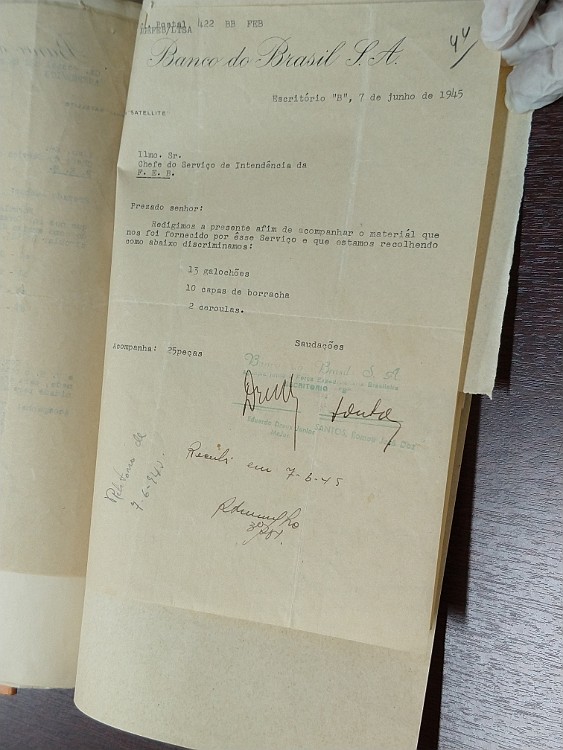 C. Postal 422 BB FEB
44
Banco do Brasil S.A.
Escritório "B", 7 de junho de 1945
"SATELLITE"
Ilmo. Sr.
Chefe do Serviço de Intendência da
F. E. B.
Prezado senhor:
Redigimos a presente afim de acompanhar o materiál que
nos foi fornecido por êsse Serviço e que estamos recolhendo
como abaixo discriminamos:
13 galochões
10 capas de borracha
2 ceroulas.
Saudações
Acompanha: 25peças
Banco do Brasil S. A.
ESCRITÓRIO "B"
Recebi em 7-6-45
7-6-945.